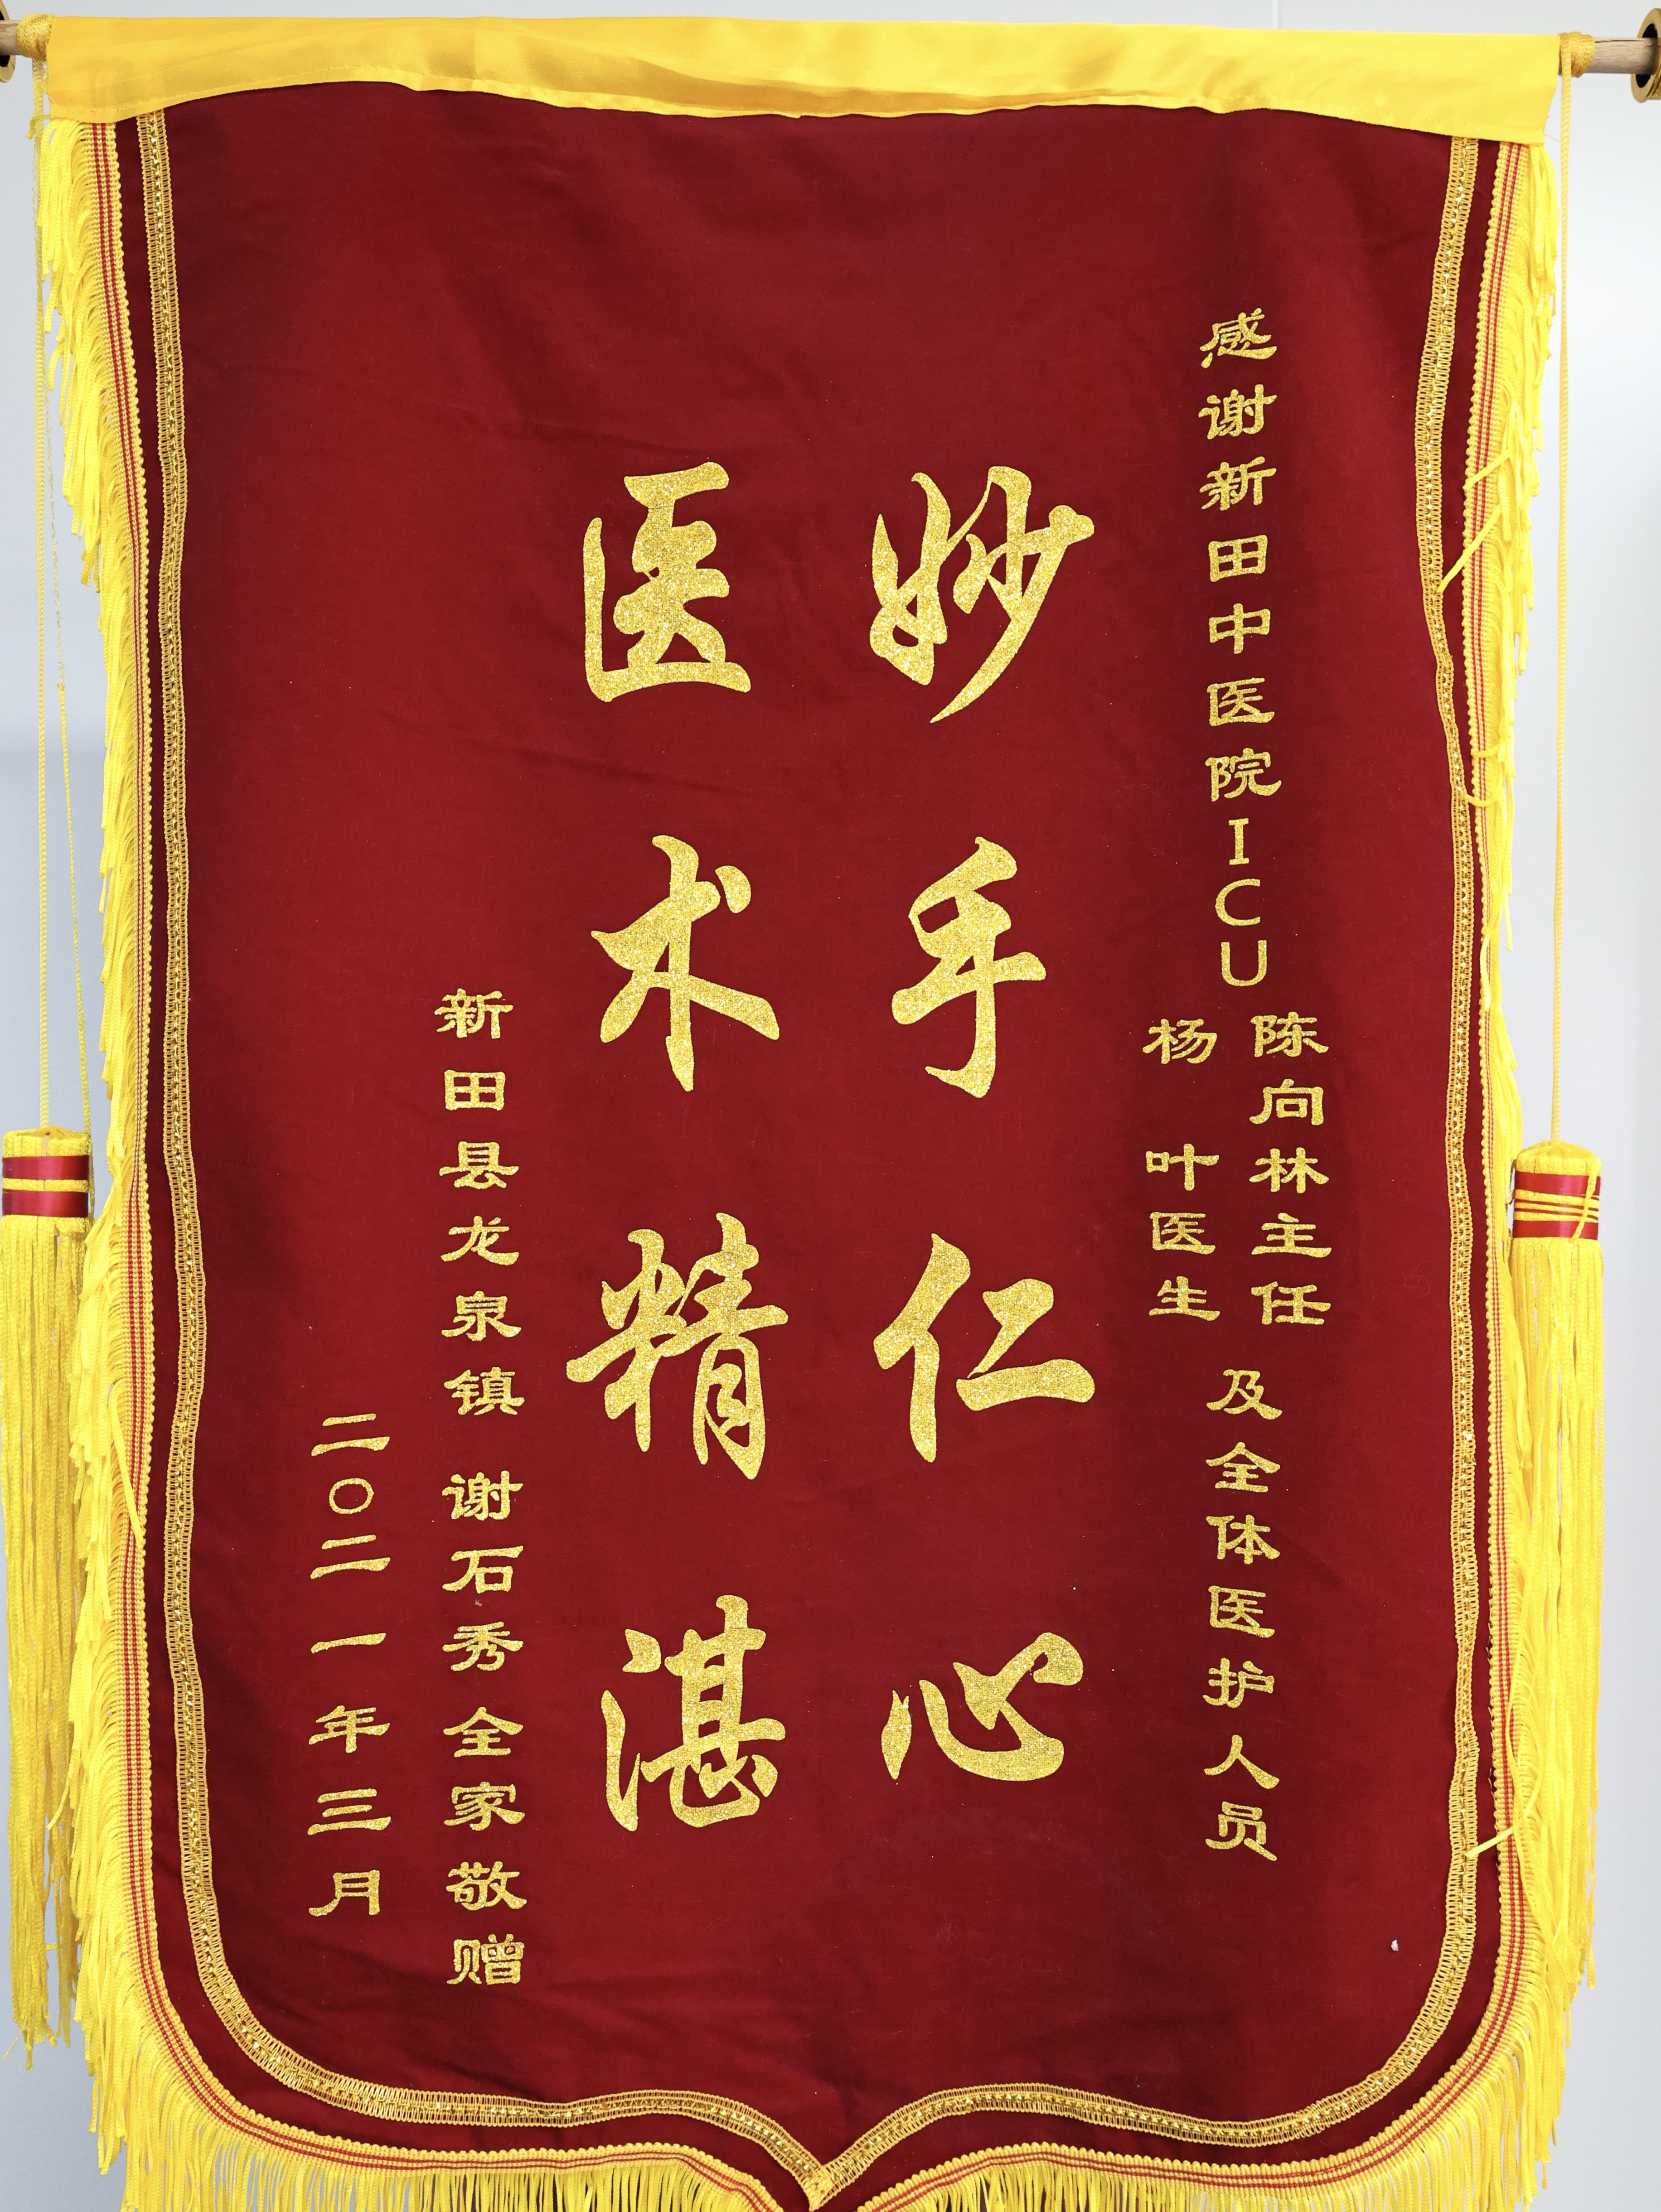 感谢新田中医院ICU
陈向林主任
杨 叶医生
及全体医护人员
妙手仁心
医术精湛
新田县龙泉镇 谢石秀全家敬赠
二〇二一年三月